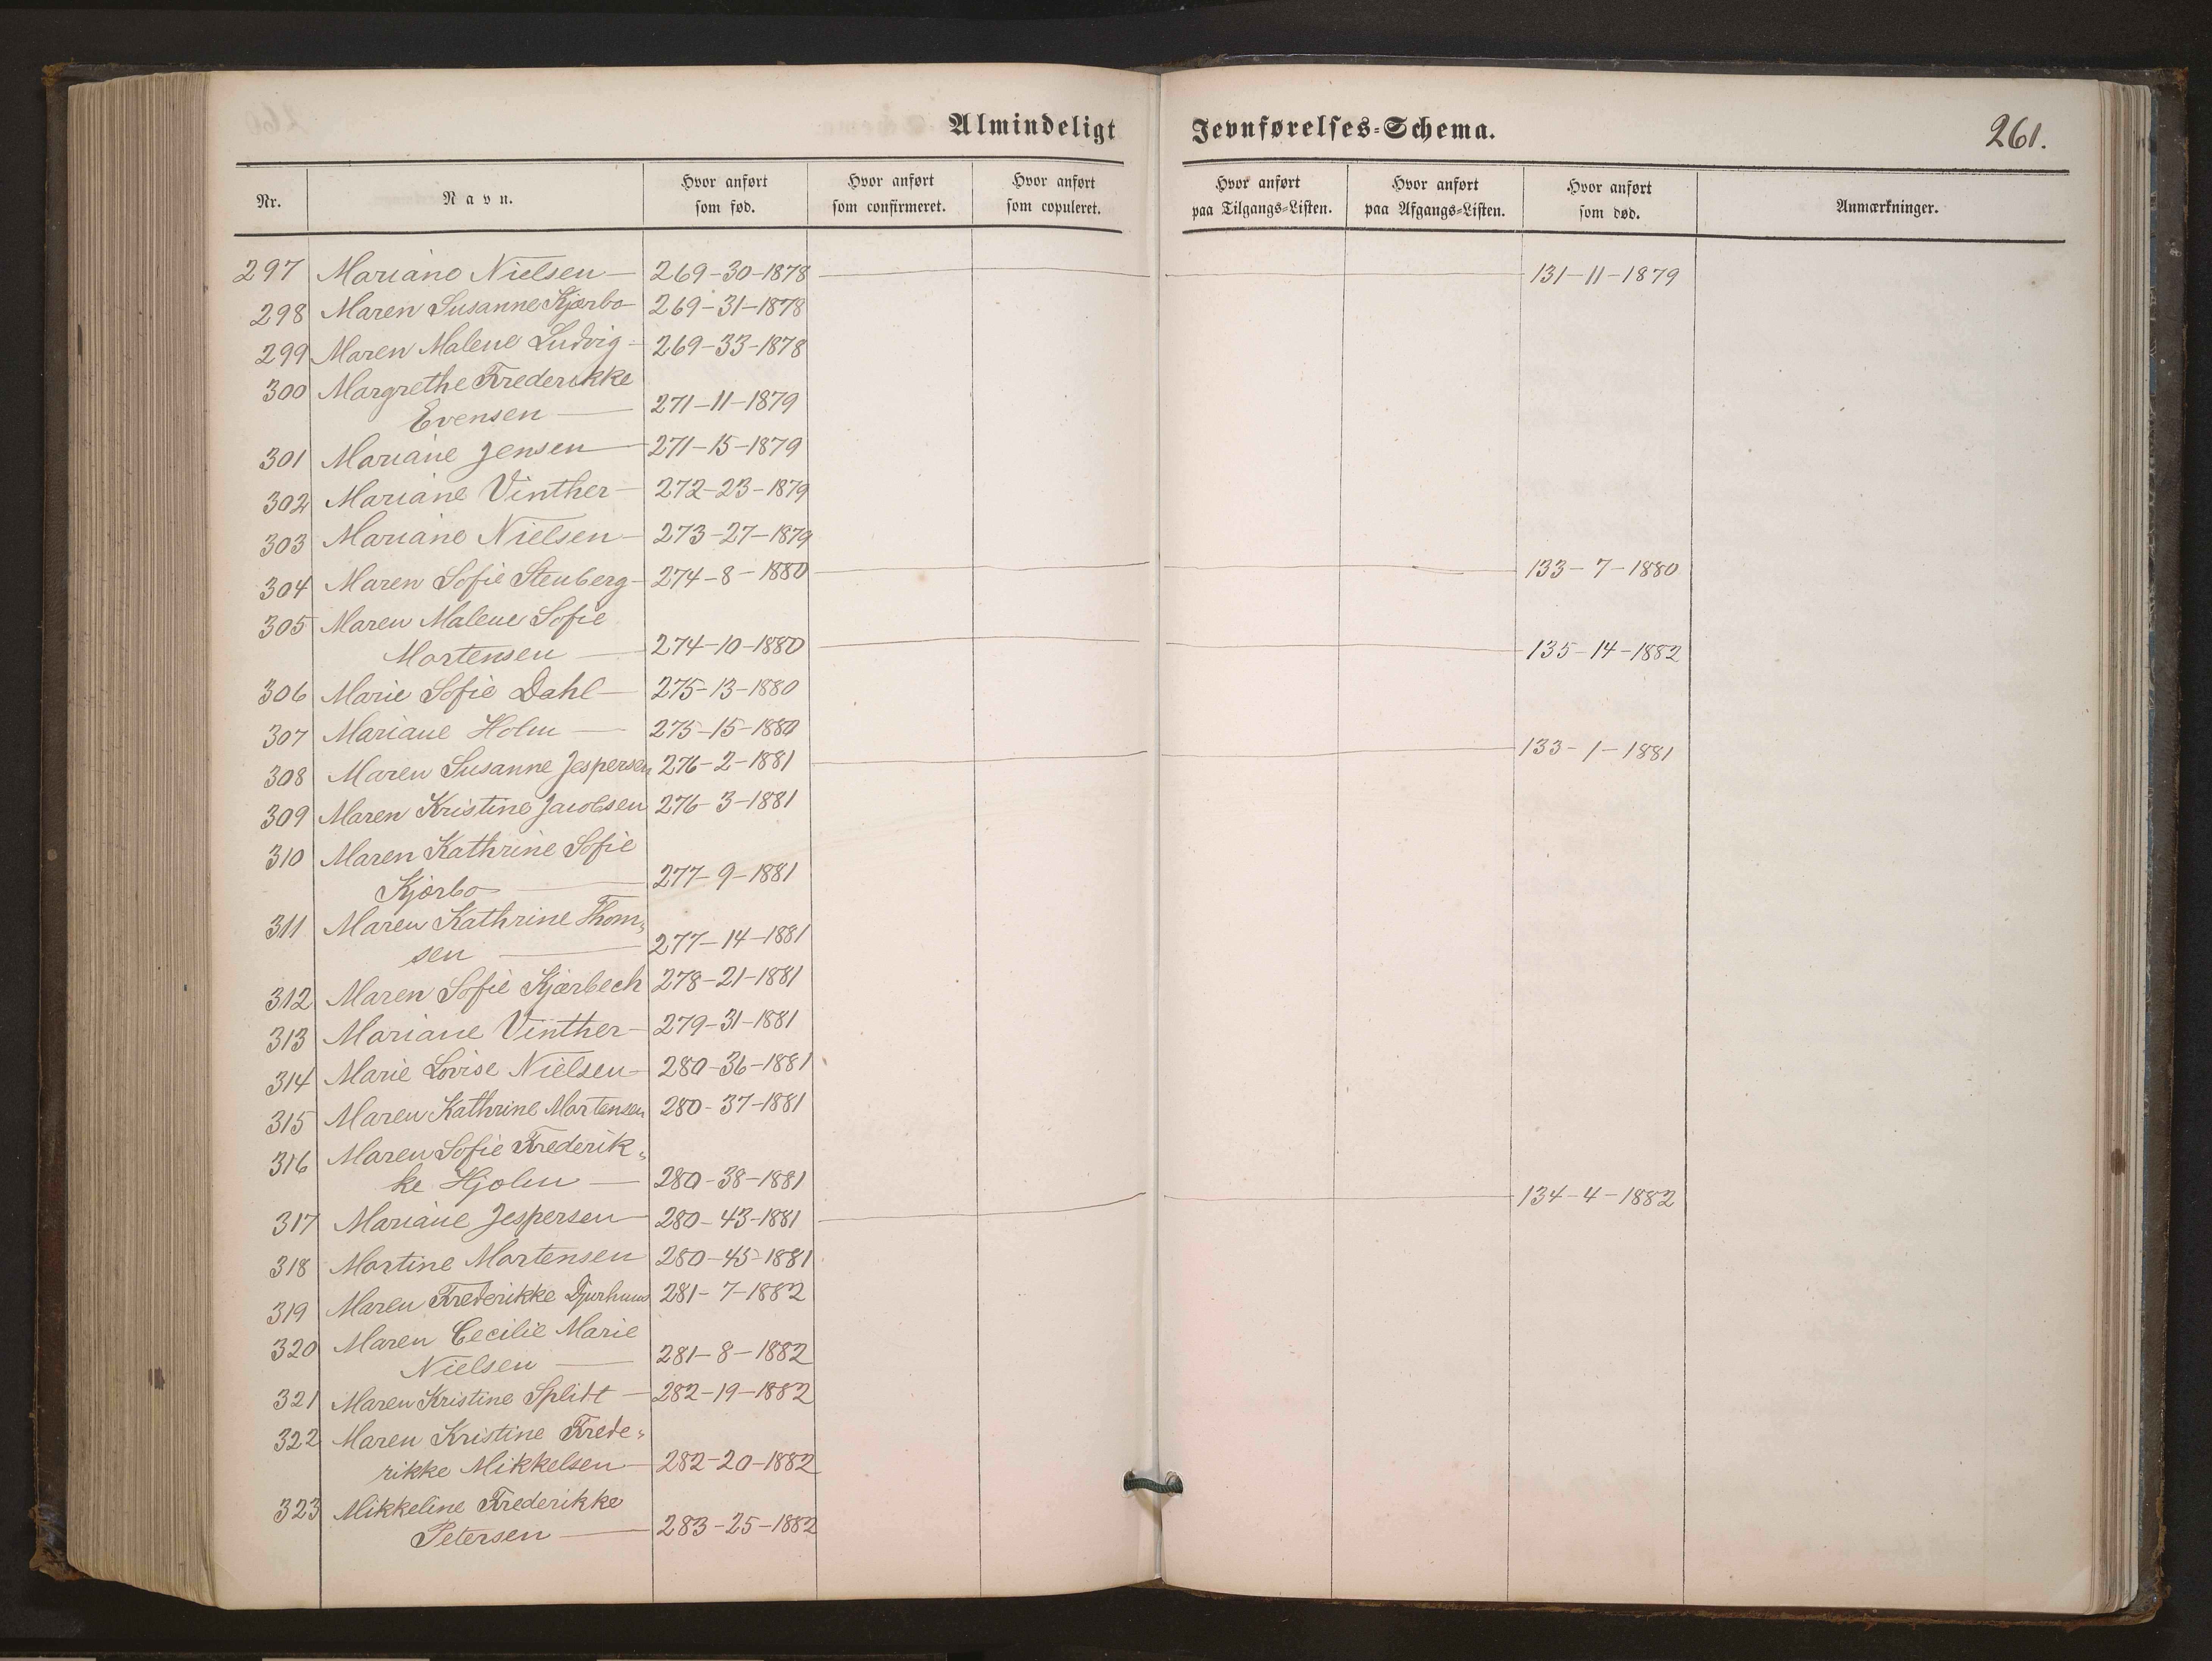 Almindeligt Jevnførelses-Schema.
261.
Nr.
Navn.
Hvor anført
som fød.
Hvor anført
som confirmeret.
Hvor anført
som copuleret.
Hvor anført
paa Tilgangs-Listen.
Hvor anført
paa Afgangs-Listen.
Hvor anført
som død.
Anmærkninger.
297 Mariane Nielsen — 269-30-1878 — 131-11-1879
298 Maren Susanne Kjærbo 269-31-1878
299 Maren Malene Ludvig - 269-33-1878
300 Margrethe Frederikke
Evensen — 271-11-1879
301 Mariane Jensen — 271-15-1879
302 Mariane Vinther - 272-23-1879
303 Mariane Nielsen - 273-27-1879
304 Maren Sofie Stenberg - 274-8-1880 — 133-7-1880
305 Maren Malene Sofie
Mortensen — 274-10-1880 — 135-14-1882
306 Marie Sofie Dahl — 275-13-1880
307 Mariane Holm — 275-15-1880
308 Maren Susanne Jespersen 276-2-1881 — 133-1-1881
309 Maren Kristine Jacobsen 276-3-1881
310 Maren Kathrine Sofie
Kjærbo — 277-9-1881
311 Maren Kathrine Thom,,
sen — 277-14-1881
312 Maren Sofie Kjærbech 278-21-1881
313 Mariane Vinther - 279-31-1881
314 Marie Lovise Nielsen - 280-36-1881
315 Maren Kathrine Mortensen 280-37-1881
316 Maren Sofie Frederik,,
ke Hjolm — 280-38-1881
317 Mariane Jespersen — 280-43-1881 — 134-4-1882
318 Martine Mortensen 280-45-1881
319 Maren Frederikke Djurhuus 281-7-1882
320 Maren Cecilie Marie
Nielsen — 281-8-1882
321 Maren Kristine Splidt — 282-19-1882
322 Maren Kristine Frede,,
rikke Mikkelsen — 282-20-1882
323 Mikkeline Frederikke
Petersen — 283-25-1882